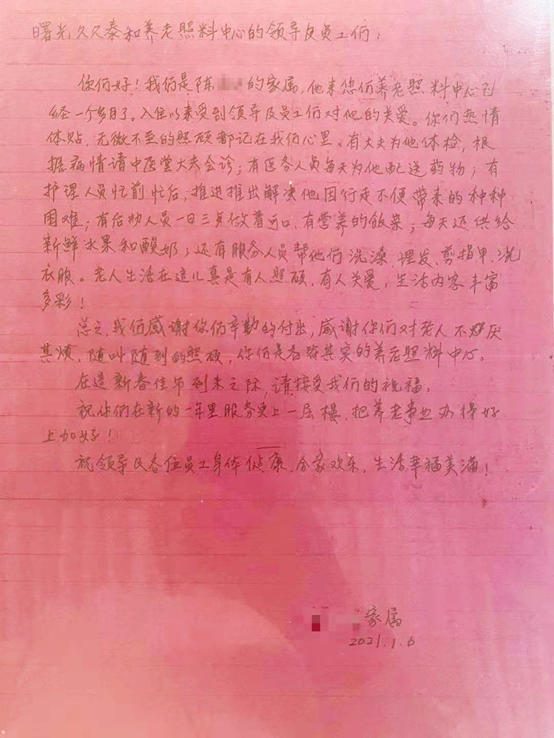 曙光久久泰和养老照料中心的领导及员工们：
你们好！我们是陈 的家属，他来您们养老照料中心已
经一个多月了。入住以来受到领导及员工们对他的关爱。你们热情
体贴，无微不至的照顾都记在我们心里。有大夫为他体检，根
据病情请中医堂大夫会诊；有医务人员每天为他配送药物；有
护理人员忙前忙后，推进推出解决他因行走不便带来的种种
困难；有后勤人员一日三餐做着可口、有营养的饭菜；每天还供给
新鲜水果和酸奶；还有服务人员帮他们洗澡、理发、剪指甲、洗
衣服。老人生活在这儿真是有人照顾，有人关爱，生活内容丰富
多彩！
总之，我们感谢你们辛勤的付出，感谢你们对老人不厌
其烦，随叫随到的照顾，你们是名符其实的养老照料中心。
在这新春佳节到来之际，请接受我们的祝福。
祝你们在新的一年里服务更上一层楼，把养老事业办得好
上加好！
祝领导及各位员工身体健康，合家欢乐，生活幸福美满！
家属
2021.1.6